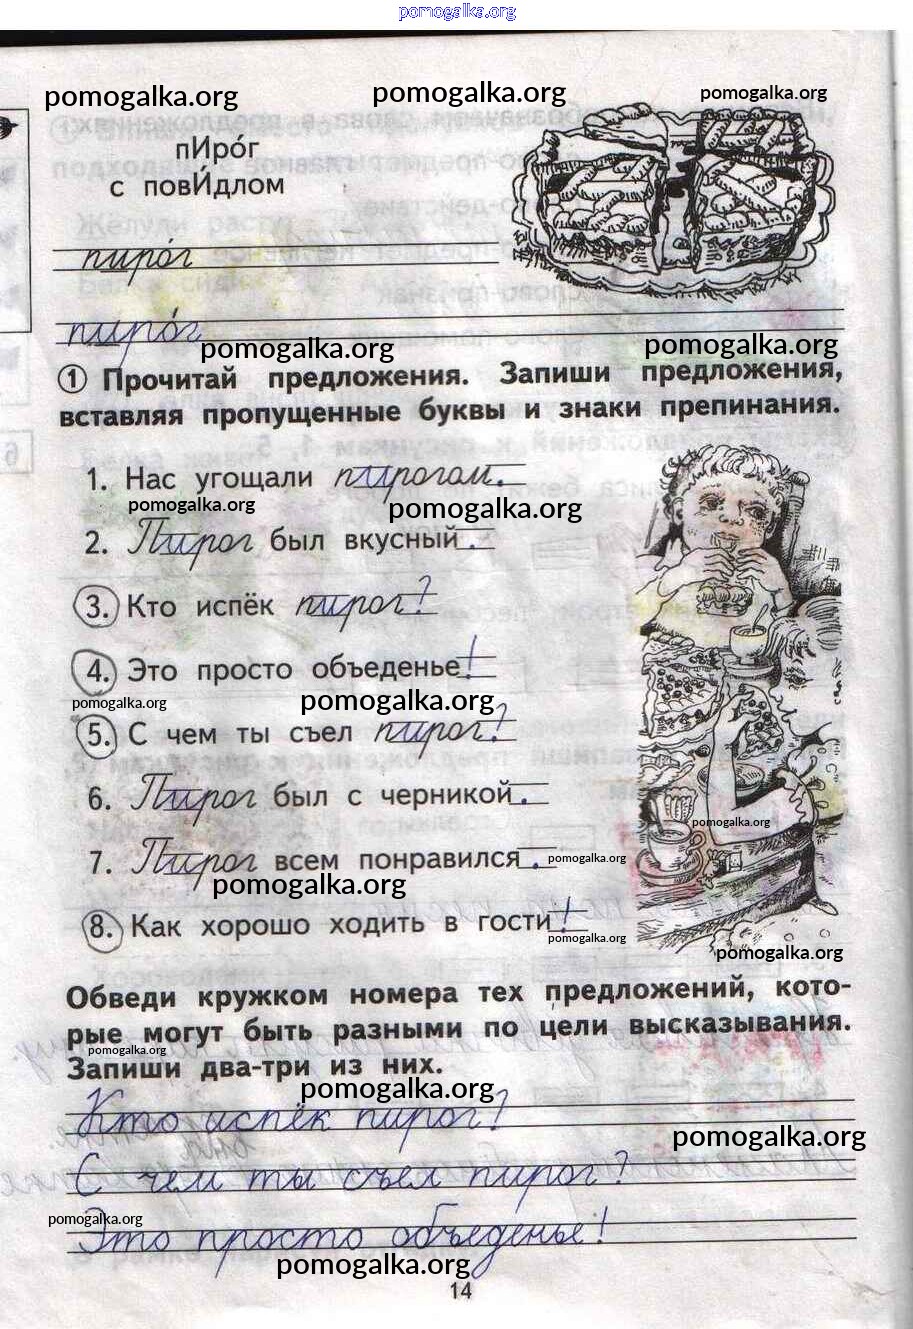 pomogalka.org
pomogalka.org pomogalka.org pomogalka.org
пИро́г
с повИ́длом
пиро́г
пиро́г
pomogalka.org pomogalka.org
1 Прочитай предложения. Запиши предложения,
вставляя пропущенные буквы и знаки препинания.
1. Нас угощали пирогом.
pomogalka.org pomogalka.org
2. Пирог был вкусный.
3. Кто испёк пирог?
4. Это просто объеденье!
pomogalka.org pomogalka.org
5. С чем ты съел пирог?
6. Пирог был с черникой.
pomogalka.org
7. Пирог всем понравился.
pomogalka.org
pomogalka.org
8. Как хорошо ходить в гости!
pomogalka.org
pomogalka.org
Обведи кружком номера тех предложений, кото-
рые могут быть разными по цели высказывания.
pomogalka.org
Запиши два-три из них.
pomogalka.org
Кто испёк пирог?
pomogalka.org
С чем ты съел пирог?
pomogalka.org
Это просто объеденье!
pomogalka.org
14